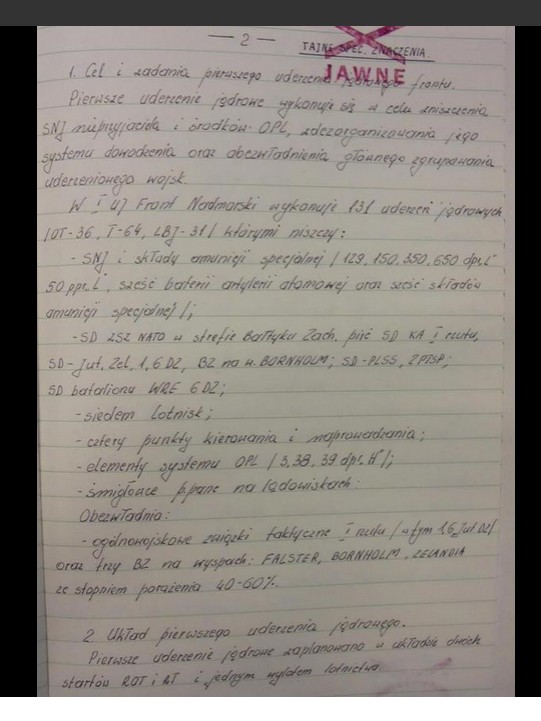 — 2 —
TAJNE SPEC. ZNACZENIA.
JAWNE
1. Cel i zadania pierwszego uderzenia jądrowego frontu.
Pierwsze uderzenie jądrowe wykonuje się w celu zniszczenia
SNJ nieprzyjaciela i środków OPL, zdezorganizowania jego
systemu dowodzenia oraz obezwładnienia głównego zgrupowania
uderzeniowego wojsk.
W I UJ Front Nadmorski wykonuje 131 uderzeń jądrowych
/OT-36, T-64, LBJ-31/ którymi niszczy:
- SNJ i składy amunicji specjalnej /129, 150, 350, 650 dpr„L"
50 ppr.„L", sześć baterii artylerii atomowej oraz sześć składów
amunicji specjalnej/;
- SD ZSZ NATO w strefie Bałtyku Zach. pięć SD KA I rzutu,
SD - Jut. Zel, 1, 6 DZ, BZ na w. BORNHOLM; SD - PLSS, 2PTSP;
SD batalionu WRE 6 DZ;
- siedem lotnisk;
- cztery punkty kierowania i naprowadzania;
- elementy systemu OPL /3, 38, 39 dpr.„H"/;
- śmigłowce p.panc na lądowiskach.
Obezwładnia:
- ogólnowojskowe związki taktyczne I rzutu /w tym 1, 6, Jut DZ/
oraz trzy BZ na wyspach: FALSTER, BORNHOLM, ZELANDIA
ze stopniem porażenia 40-60%.
2. Układ pierwszego uderzenia jądrowego.
Pierwsze uderzenie jądrowe zaplanowano w układzie dwóch
startów ROT i RT i jednym wylotem lotnictwa.